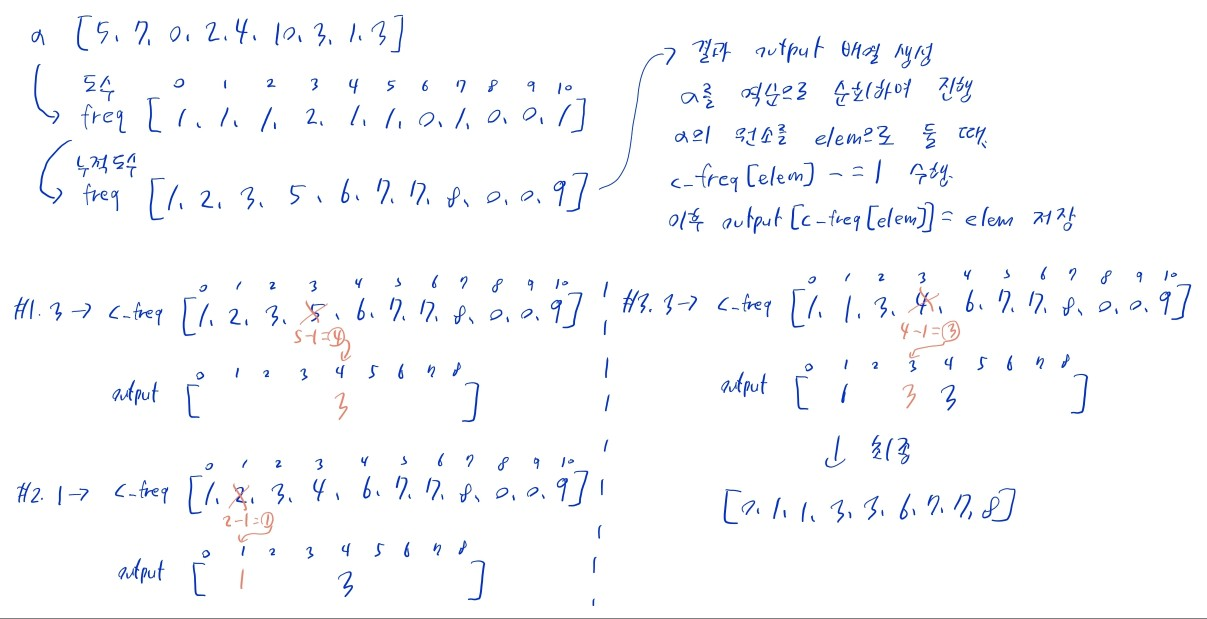 a [5, 7, 0, 2, 4, 10, 3, 1, 3]
도수 0 1 2 3 4 5 6 7 8 9 10
freq [1, 1, 1, 2, 1, 1, 0, 1, 0, 0, 1]
누적도수
freq [1, 2, 3, 5, 6, 7, 7, 8, 0, 0, 9]
결과 output 배열 생성
a를 역순으로 순회하여 진행
a의 원소를 elem으로 둘 때,
c_freq[elem] -= 1 수행.
이후 output[c-freq[elem]] = elem 저장
0 1 2 3 4 5 6 7 8 9 10
#1. 3 → c_freq [1, 2, 3, 5, 6, 7, 7, 8, 0, 0, 9]
5-1=4
0 1 2 3 4 5 6 7 8
output [ 3 ]
0 1 2 3 4 5 6 7 8 9 10
#2. 1 → c_freq [1, 2, 3, 4, 6, 7, 7, 8, 0, 0, 9]
2-1=1
0 1 2 3 4 5 6 7 8
output [ 1 3 ]
0 1 2 3 4 5 6 7 8 9 10
#3. 3 → c_freq [1, 1, 3, 4, 6, 7, 7, 8, 0, 0, 9]
4-1=3
0 1 2 3 4 5 6 7 8
output [ 1 3 3 ]
↓ 최종
[0, 1, 1, 3, 3, 6, 7, 7, 8]